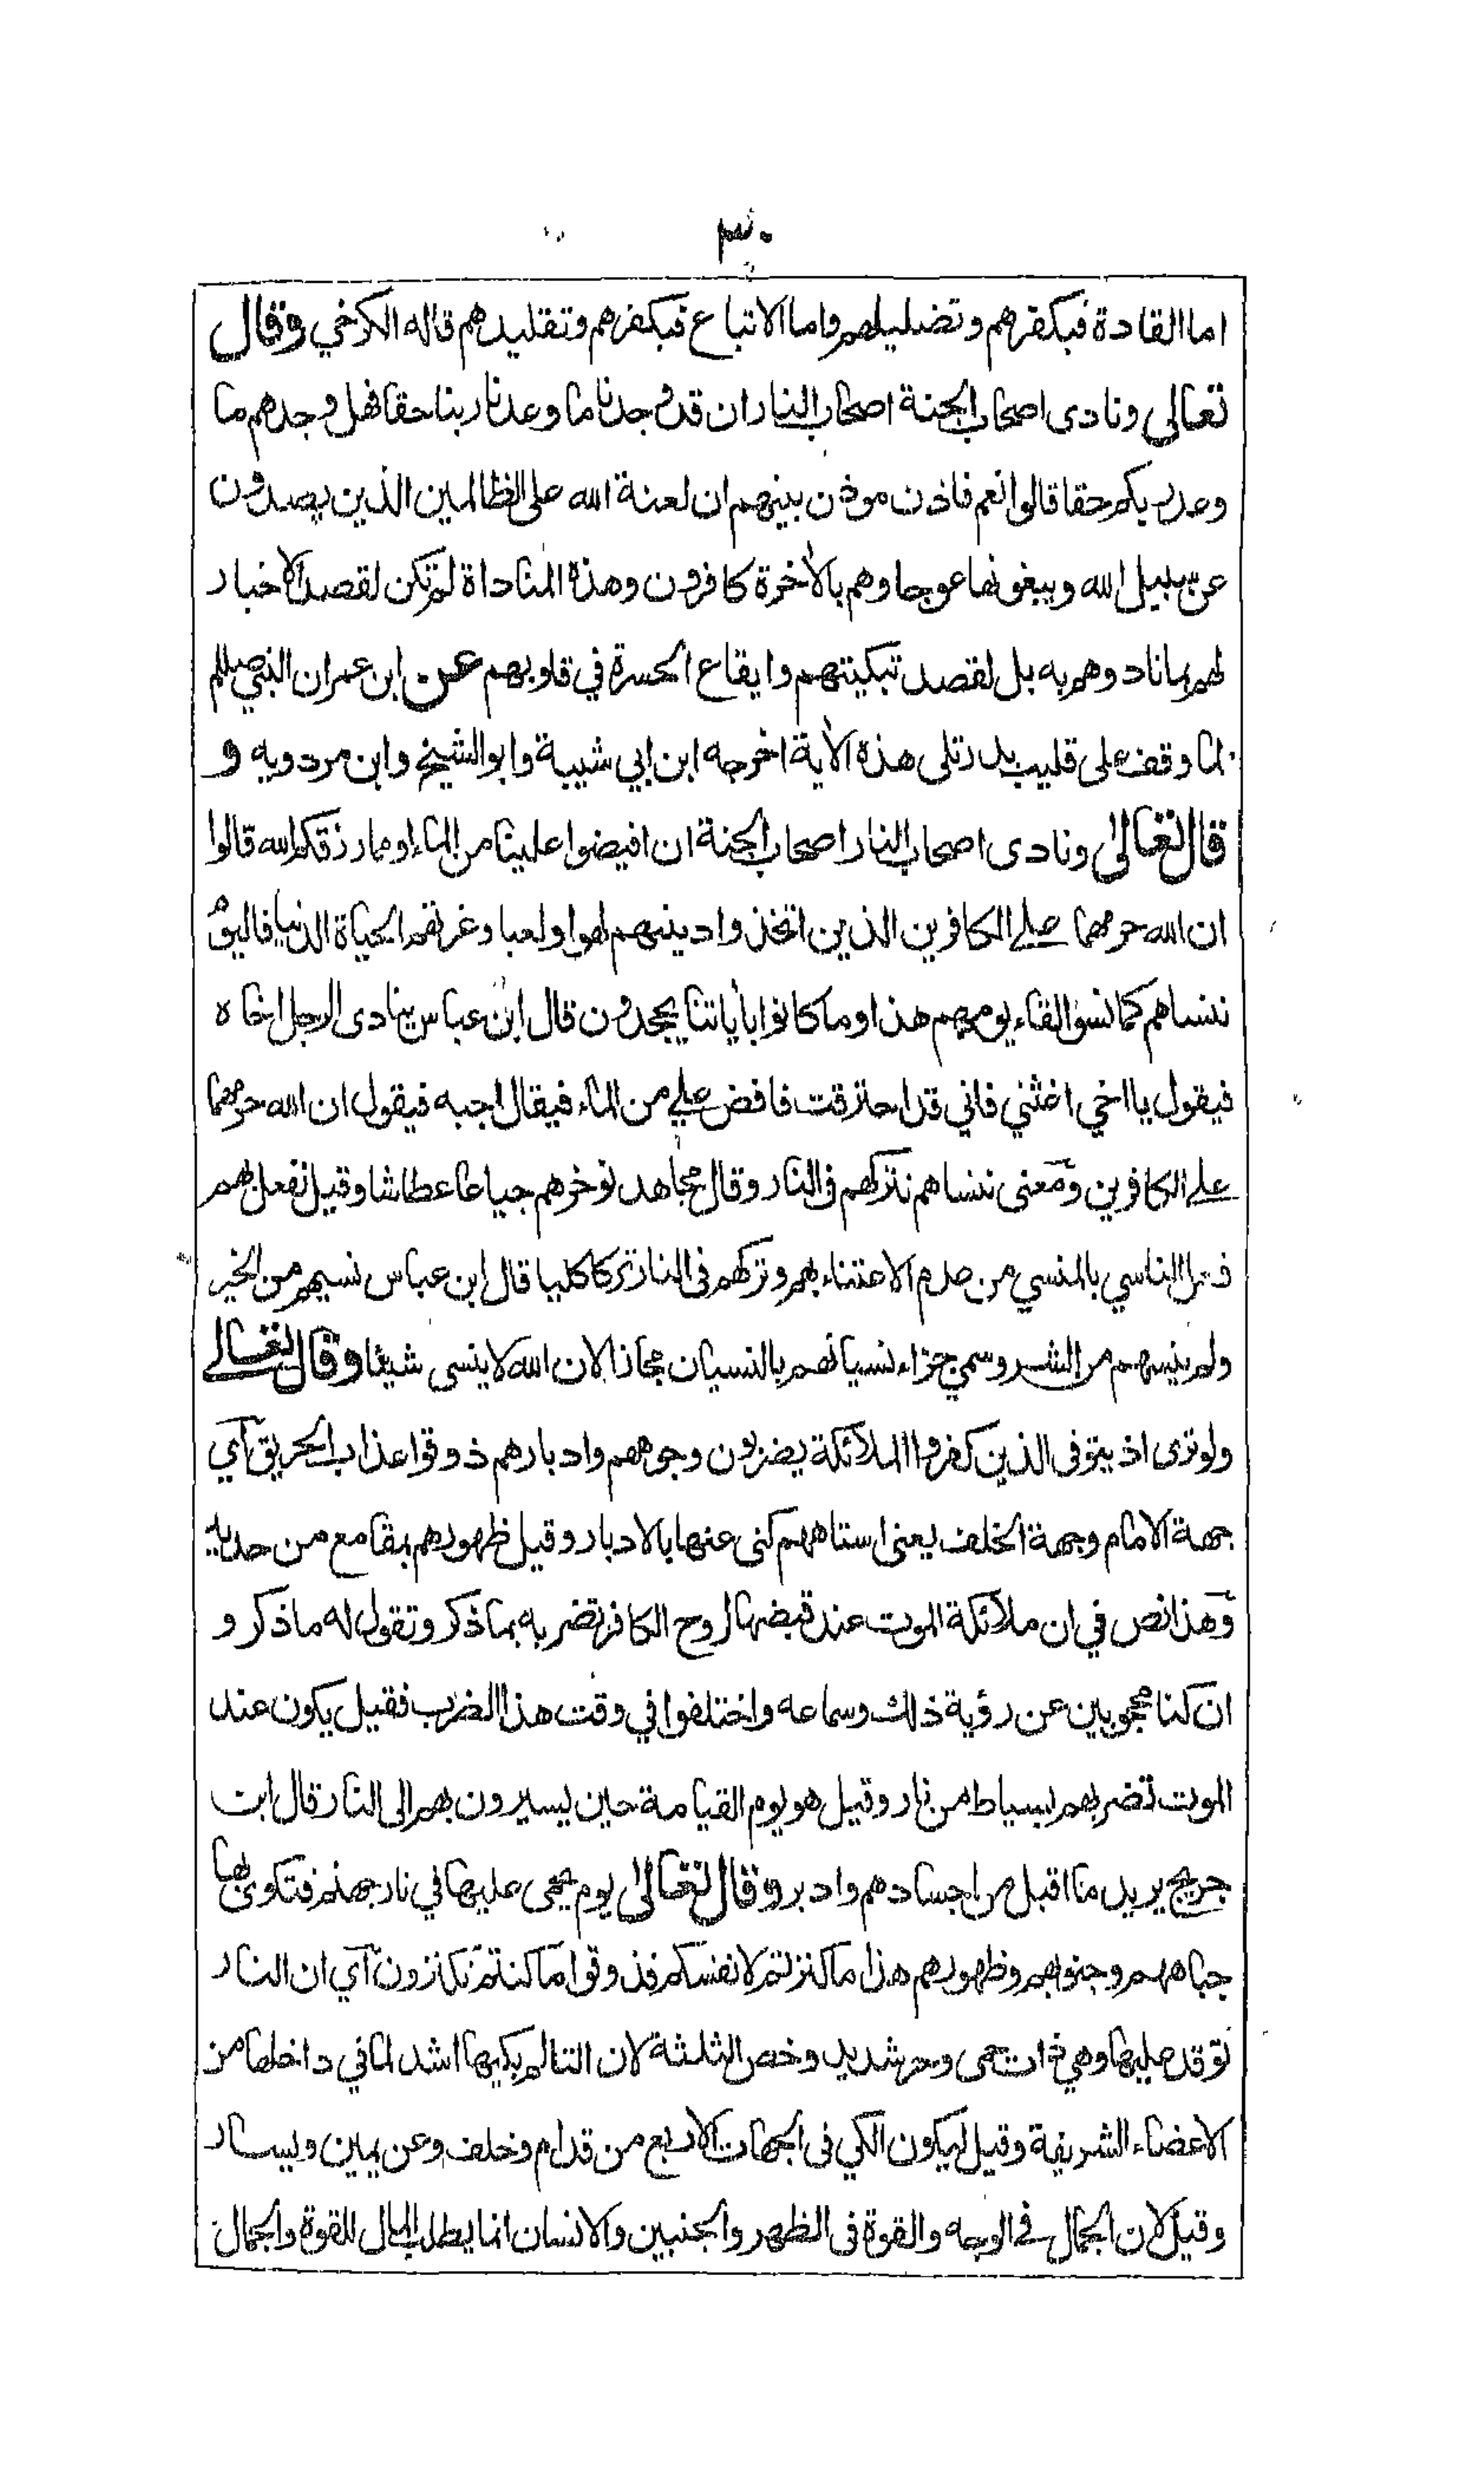 ٣٠
اما القادة فبكفرهم وتضليلهم واما الاتباع فبكفرهم وتقليدهم قاله الكرخي وقال
تعالى ونادى اصحاب الجنة اصحاب النار ان قد وجدنا ما وعدنا ربنا حقا فهل وجدتم ما
وعد ربكم حقا قالوا نعم فاذن موذن بينهم ان لعنة الله على الظالمين الذين يصدون
عن سبيل الله ويبغونها عوجا وهم بالأخرة كافرون وهذه المناداة لم تكن لقصد الاخبار
لهم بما نادوهم به بل لقصد تبكيتهم وايقاع الحسرة في قلوبهم عن ابن عمران النبي صللم
لما وقف على قليب بدر تلى هذه الأية اخرجه ابن ابي شيبة وابو الشيخ وابن مردويه و
قال تعالى ونادى اصحاب النار اصحاب الجنة ان افيضوا علينا من الماء او مما رزقكم الله قالوا
ان الله حرمهما على الكافرين الذين اتخذوا دينهم لهوا ولعبا وغرتهم الحياة الدنيا فاليوم
ننساهم كما نسوا لقاء يومهم هذا وما كانوا بأياتنا يجحدون قال ابن عباس ينادى الرجل اخاه
فيقول يا اخي اغثني فاني قد احترقت فافض علي من الماء فيقال اجبه فيقول ان الله حرمهما
على الكافرين ومعنى ننساهم نتركهم في النار وقال مجاهد نوخرهم جياعا عطاشا وقيل نفعل بهم
فعل الناسي بالمنسي من عدم الاعتناء بهم وتركهم في النار تركا كليا قال ابن عباس نسيهم من الخير
ولم ينسهم من الشر وسمي جزاء نسيانهم بالنسيان مجازا لان الله لا ينسى شيئا وقال تعالى
ولو ترى اذ يتوفى الذين كفروا الملائكة يضربون وجوههم وادبارهم ذوقوا عذاب الحريق آي
جهة الامام وجهة الخلف يعني استاههم كنى عنها بالادبار وقيل ظهورهم بمقامع من حديد
وهذا نص في ان ملائكة الموت عند قبضها لروح الكافر تضربه بما ذكر وتقول له ما ذكر و
ان كنا محجوبين عن رؤية ذلك وسماعه واختلفوا في وقت هذا الضرب فقيل يكون عند
الموت تضربهم بسياط من نار وقيل هو يوم القيامة حين يسيرون بهم الى النار قال ابن
جريج يريد ما اقبل من اجسادهم وادبر وقال تعالى يوم يحمى عليها في نار جهنم فتكوى بها
جباههم وجنوبهم وظهورهم هذا ما كنزتم لانفسكم فذوقوا ما كنتم تكنزون آي ان النار
توقد عليها وهي ذات حمى وحر شديد وخص الثلثة لان التالم بكيها اشد لما في داخلها من
الاعضاء الشريفة وقيل ليكون الكي في الجهات الاربع من قدام وخلف وعن يمين ويسار
وقيل لان الجمال في الوجه والقوة في الظهر والجنبين والانسان انما يطلب المال للقوة والجمال